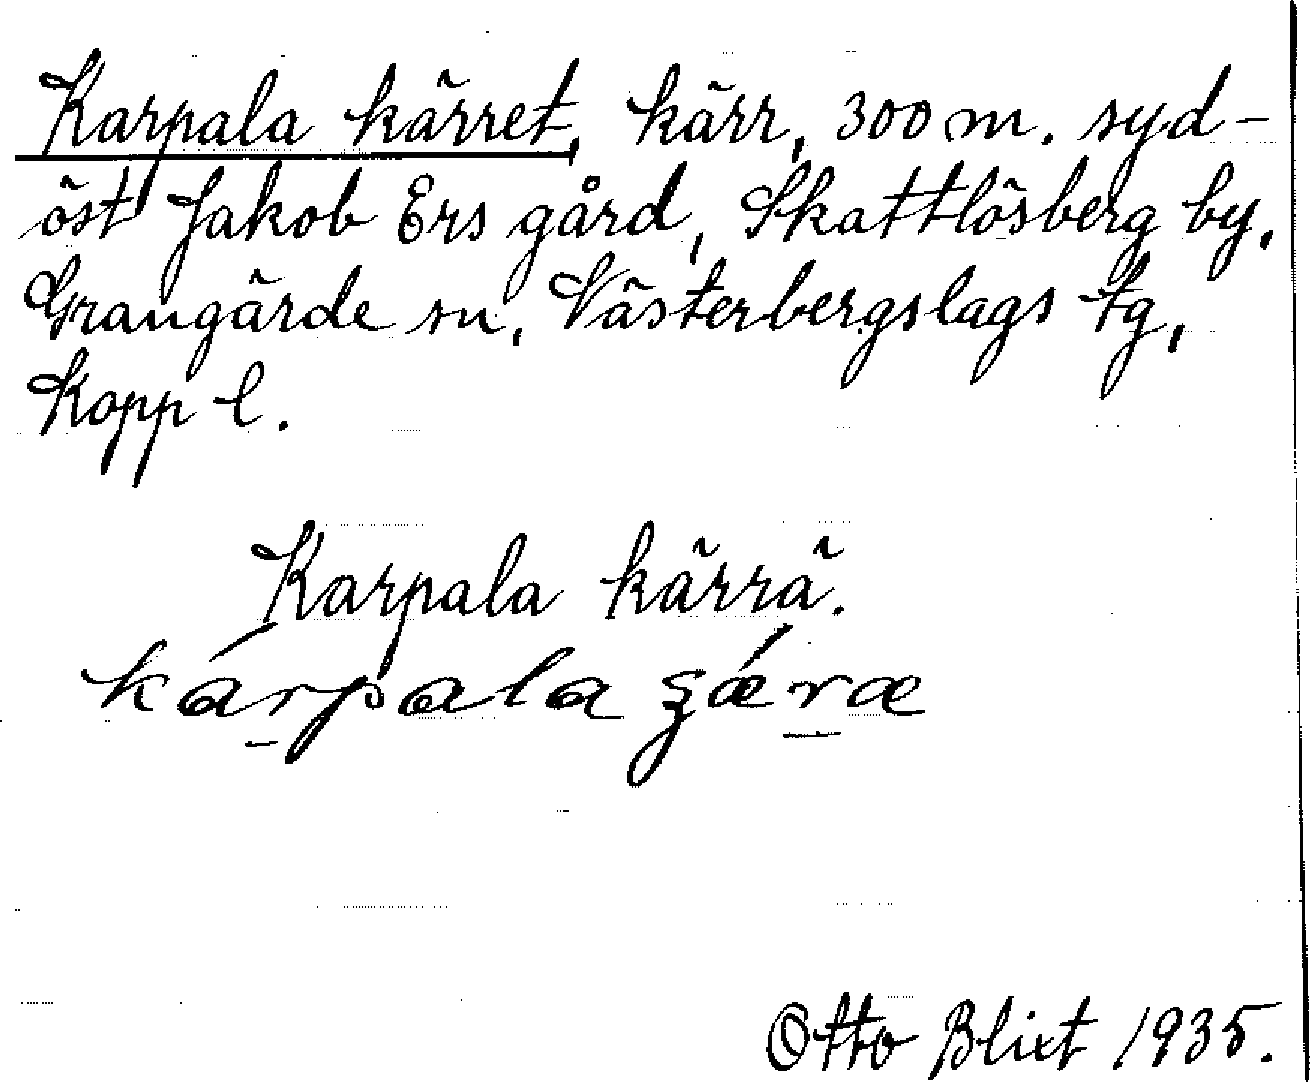 Karpala kärret, kärr, 300 m. syd-
öst Jakob Ers gård, Skattlösberg by,
Grangärde sn, Västerbergslags tg,
Kopp l.
Karpala kärrä.
kárpala ʂǽræ
Otto Blixt 1935.